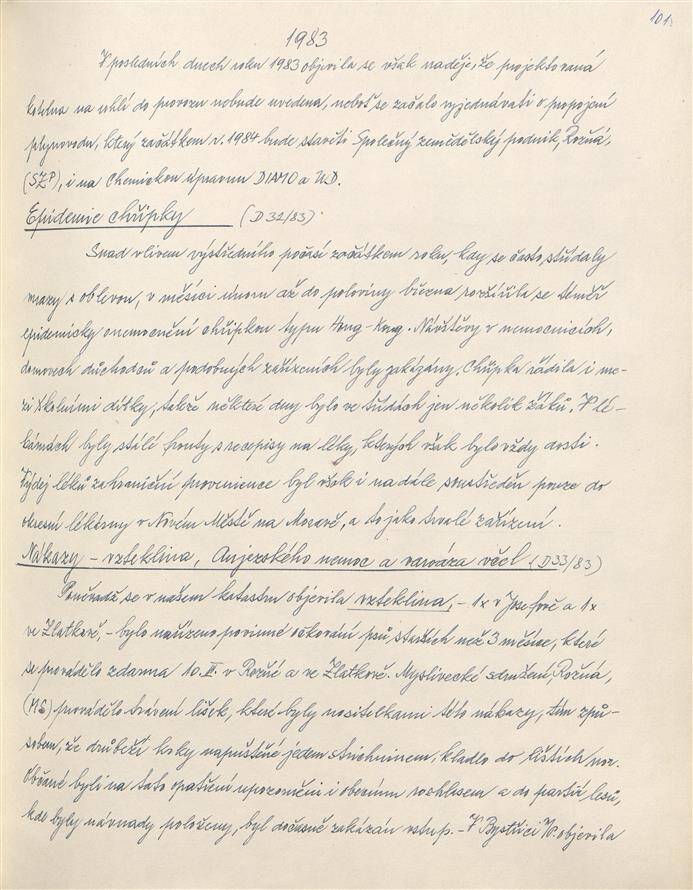 101.
1983
V posledních dnech roku 1983 objevila se však naděje, že projektovaná
kotelna na uhlí do provozu nebude uvedena, neboť se začalo vyjednávati o propojení
plynovodu, který začátkem r. 1984 bude stavěti Společný zemědělský podnik, Rožná,
(SZP), i na Chemickou úpravnu DIAMO a UD.
Epidemie chřipky (D 32/83)
Snad vlivem výstředního počasí začátkem roku, kdy se často střídaly
mrazy s oblevou, v měsíci únoru až do poloviny března rozšířila se téměř
epidemicky onemocnění chřipkou typu Hong-Kong. Návštěvy v nemocnicích,
domovech důchodců a podobných zařízeních byly zakázány. Chřipka řádila i me-
zi školními dítky, takže některé dny bylo ve třídách jen několik žáků. V lé-
kárnách byly stálé fronty s recepisy na léky, kterých však bylo vždy dosti.
Výdej léků zahraniční provenience byl však i nadále soustředěn pouze do
okresní lékárny v Novém Městě na Moravě, a to jako trvalé zařízení.
Nákazy – vzteklina, Aujezského nemoc a varoáza včel (D33/83)
Poněvadž se v našem katastru objevila vzteklina, – 1x v Josefově a 1x
ve Zlatkově, – bylo nařízeno povinné očkování psů, starších než 3 měsíce, které
se provádělo zdarma 10. II. v Rožné a ve Zlatkově. Myslivecké sdružení, Rožná,
(MS) provádělo trávení lišek, které byly nositelkami této nákazy, tím způ-
sobem, že drůbeží krky napuštěné jedem strichninem, kladlo do lištích nor.
Občané byli na tato opatření upozorněni i obecním rozhlasem a do partií lesů,
kde byly návnady položeny, byl dočasně zakázán vstup. – V Bystřici n/P. objevila